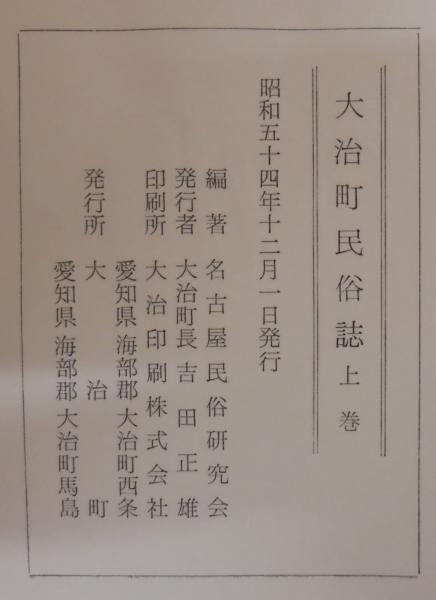 大治町民俗誌 上巻
昭和五十四年十二月一日発行
編著 名古屋民俗研究会
発行者 大治町長 吉田正雄
印刷所 大治印刷株式会社
愛知県海部郡大治町西条
発行所 大治町
愛知県海部郡大治町馬島